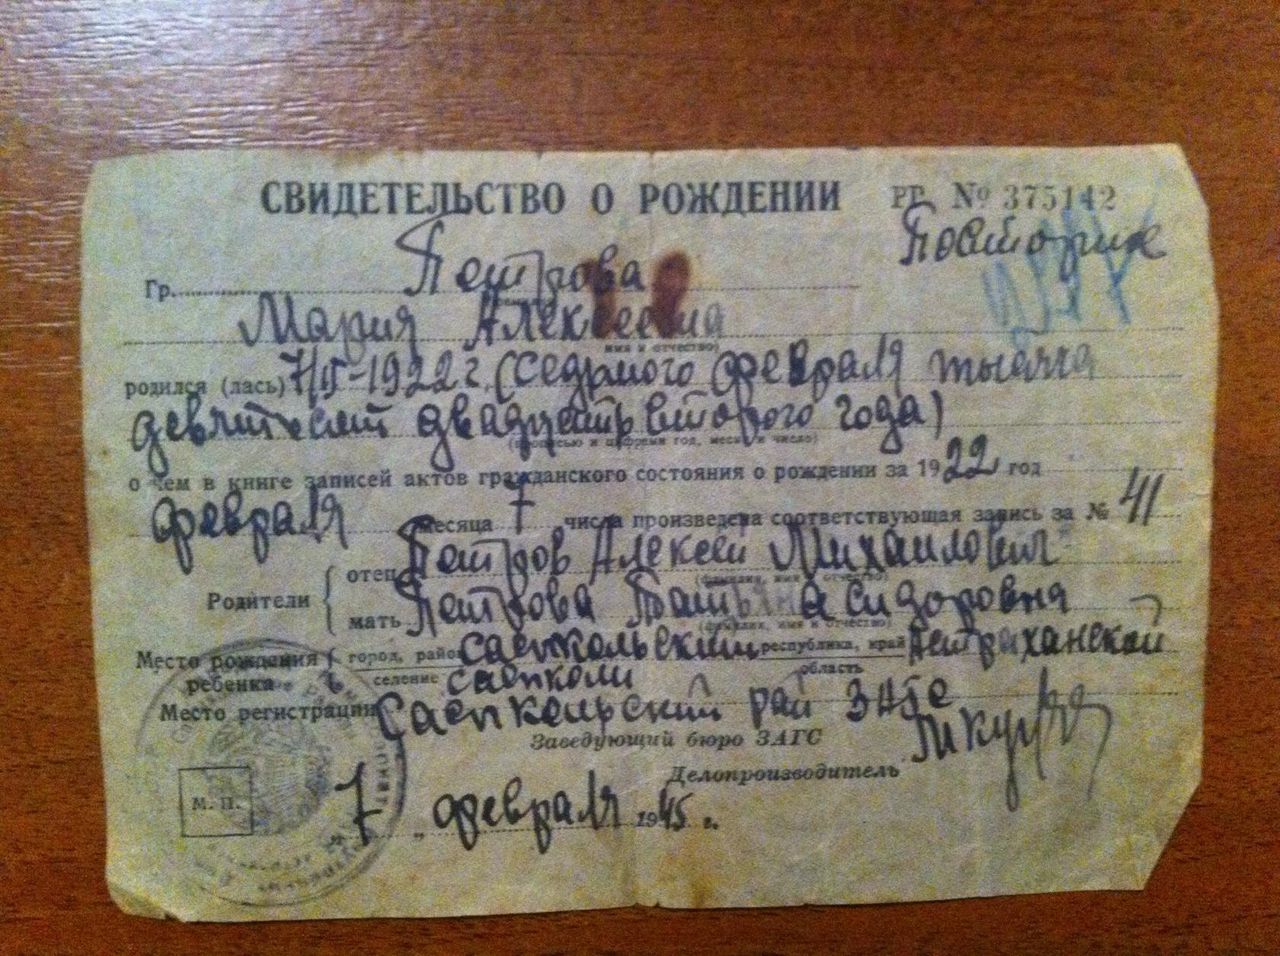 СВИДЕТЕЛЬСТВО О РОЖДЕНИИ РР № 375142
Повторное
Гр. Петрова
Мария Алексеевна
имя и отчество)
родился (лась) 7/II-1922 г. (Седьмого февраля тысяча
девятьсот двадцать второго года)
(прописью и цифрами год, месяц и число)
о чем в книге записей актов гражданского состояния о рождении за 1922 год
февраля месяца 7 числа произведена соответствующая запись за № 41
Родители
отец Петров Алексей Михайлович
(фамилия, имя и отчество)
мать Петрова Татьяна Сидоровна
(фамилия, имя и отчество)
Место рождения ребенка
город, район республика, край Астраханской
селение область
Место регистрации рай ЗАГС
Заведующий бюро ЗАГС
Делопроизводитель
М. П.
7 „ февраля 1945 г.